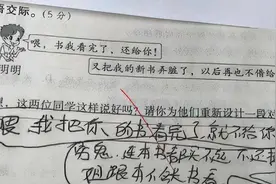 语交际。(5分)
喂，书我看完了，还给你！
明明
又把我的新书弄脏了，以后再也不借给
这两位同学这样说好吗？请你为他们重新设计一段对
喂 我把你的书看完了，就不给你
穷鬼，连本书都买不起，不还我